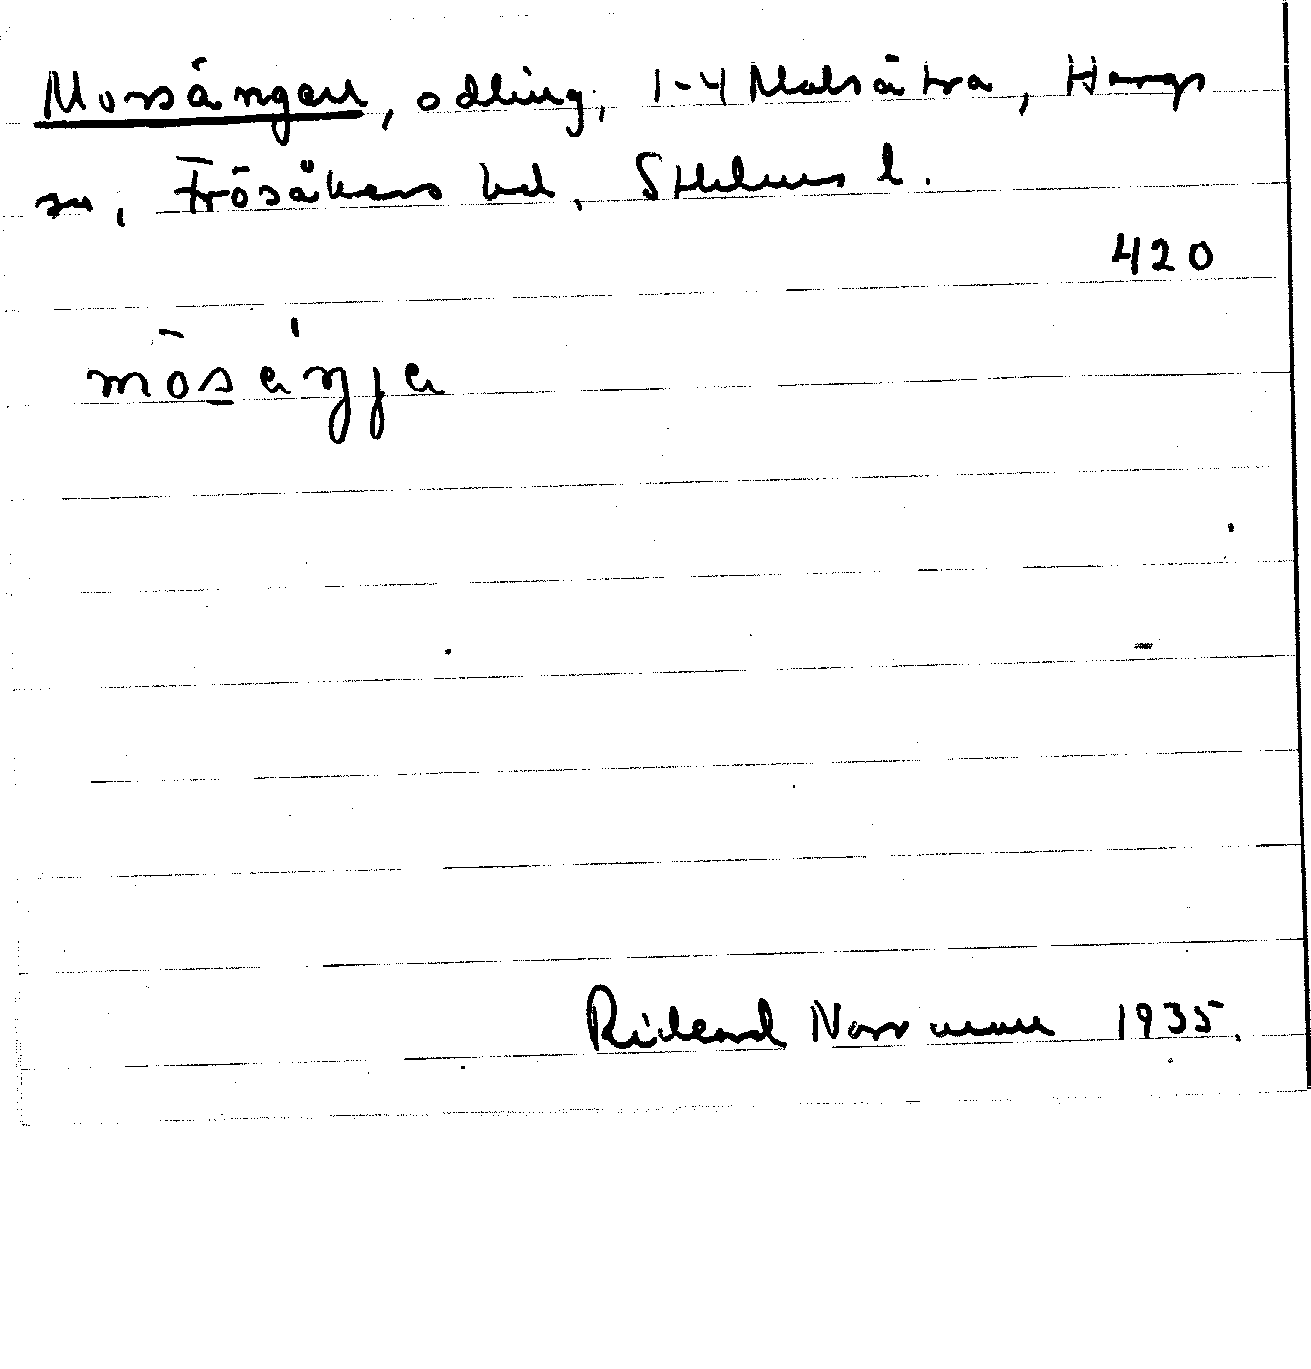 Morsängen, odling, 1-4 Malsätra, Hargs
sn, Frösåkers hd, Sthlms l.
420
mōsa̱ŋja
Rickard Norrman 1935.